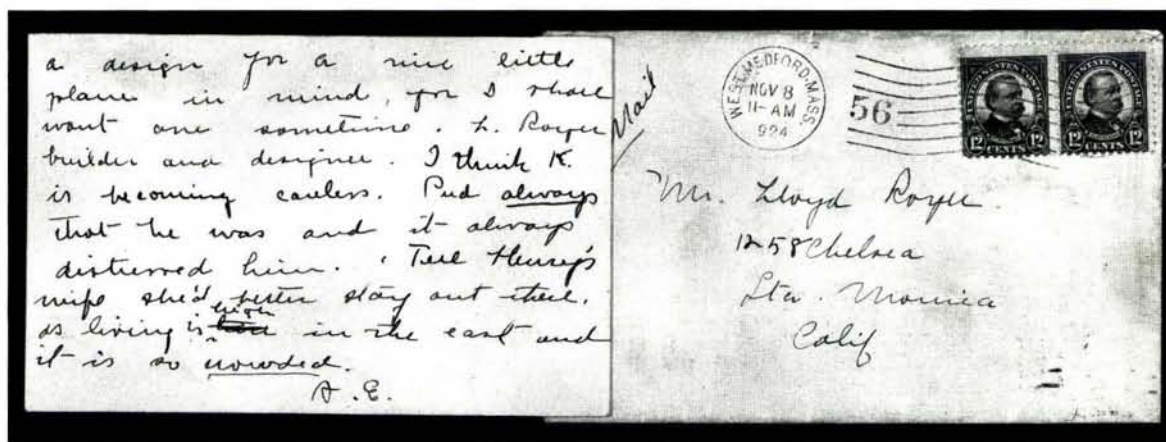 a design for a nice little
plane in mind, for I shall
want one sometime. L. Royer
builder and designer. I think K.
is becoming careless. Pud always
that he was and it always
distressed him. Tell Henry's
wife she'd better stay out there.
as living is higher in the east and
it is so crowded.
A.E.
Mail
WEST MEDFORD. MASS.
NOV 8
11-AM
1924
56
UNITED STATES POSTAGE
12 CENTS 12
UNITED STATES POSTAGE
12 CENTS 12
Mr. Lloyd Royer
1258 Chelsea
Sta. Monica
Calif